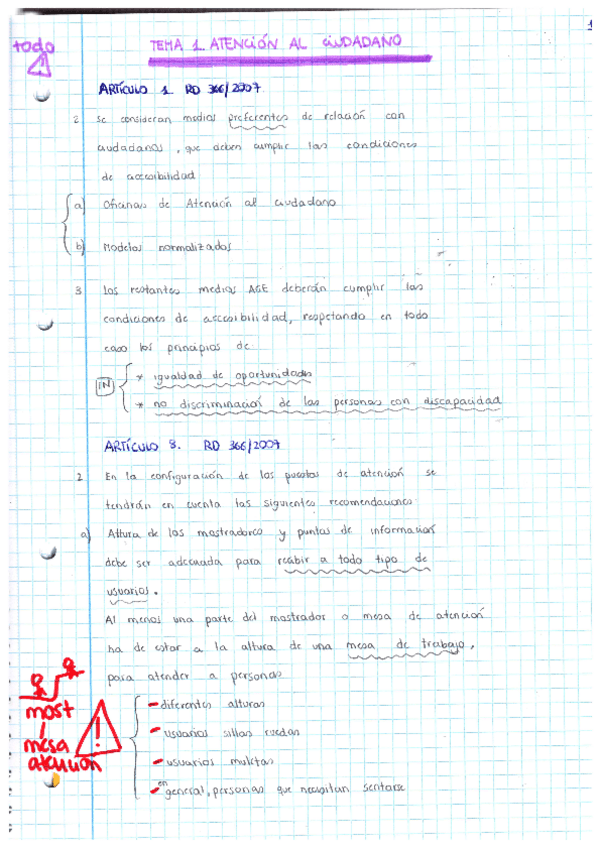 1
todo
TEMA 1. ATENCIÓN AL CIUDADANO
ARTÍCULO 1 RD 366/2007
2 Se consideran medios preferentes de relación con
ciudadanos, que deben cumplir las condiciones
de accesibilidad
a) Oficinas de Atención al ciudadano
b) Modelos normalizados
3 Los restantes medios AGE deberán cumplir las
condiciones de accesibilidad, respetando en todo
caso los principios de
IN
* igualdad de oportunidades
* no discriminación de las personas con discapacidad
ARTÍCULO 3. RD 366/2007
2 En la configuración de los puestos de atención se
tendrán en cuenta las siguientes recomendaciones
a) Altura de los mostradores y puntos de información
debe ser adecuada para recibir a todo tipo de
usuarios.
Al menos una parte del mostrador o mesa de atención
ha de estar a la altura de una mesa de trabajo,
para atender a personas
- diferentes alturas
- usuarios sillas ruedas
- usuarios muletas
- en general, personas que necesitan sentarse
most
mesa
atención
!